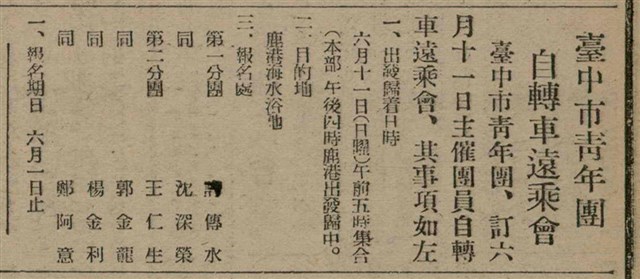 臺中市青年團
自轉車遠乘會
臺中市青年團、訂六
月十一日主催團員自轉
車遠乘會、其事項如左
一、出發歸着日時
六月十一日(日曜)午前五時集合
(本部、午後四時鹿港出發歸中。
二、目的地
鹿港海水浴池
三、報名處
第一分團 傳水
同 沈深榮
第二分團 王仁生
同 郭金龍
同 楊金利
同 鄭阿意
一、報名期日 六月一日止